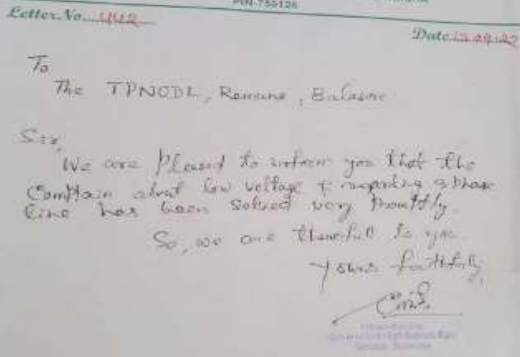 PIN-755126
Letter. No. 442
Date 12.09.22
To
The TPNODL, Remuna, Balasore
Sir,
We are Pleased to inform you that the
Complain about low voltage & regarding 3 phase
line has been solved very Promptly.
So, we are thankfull to you.
Yours faithfully,